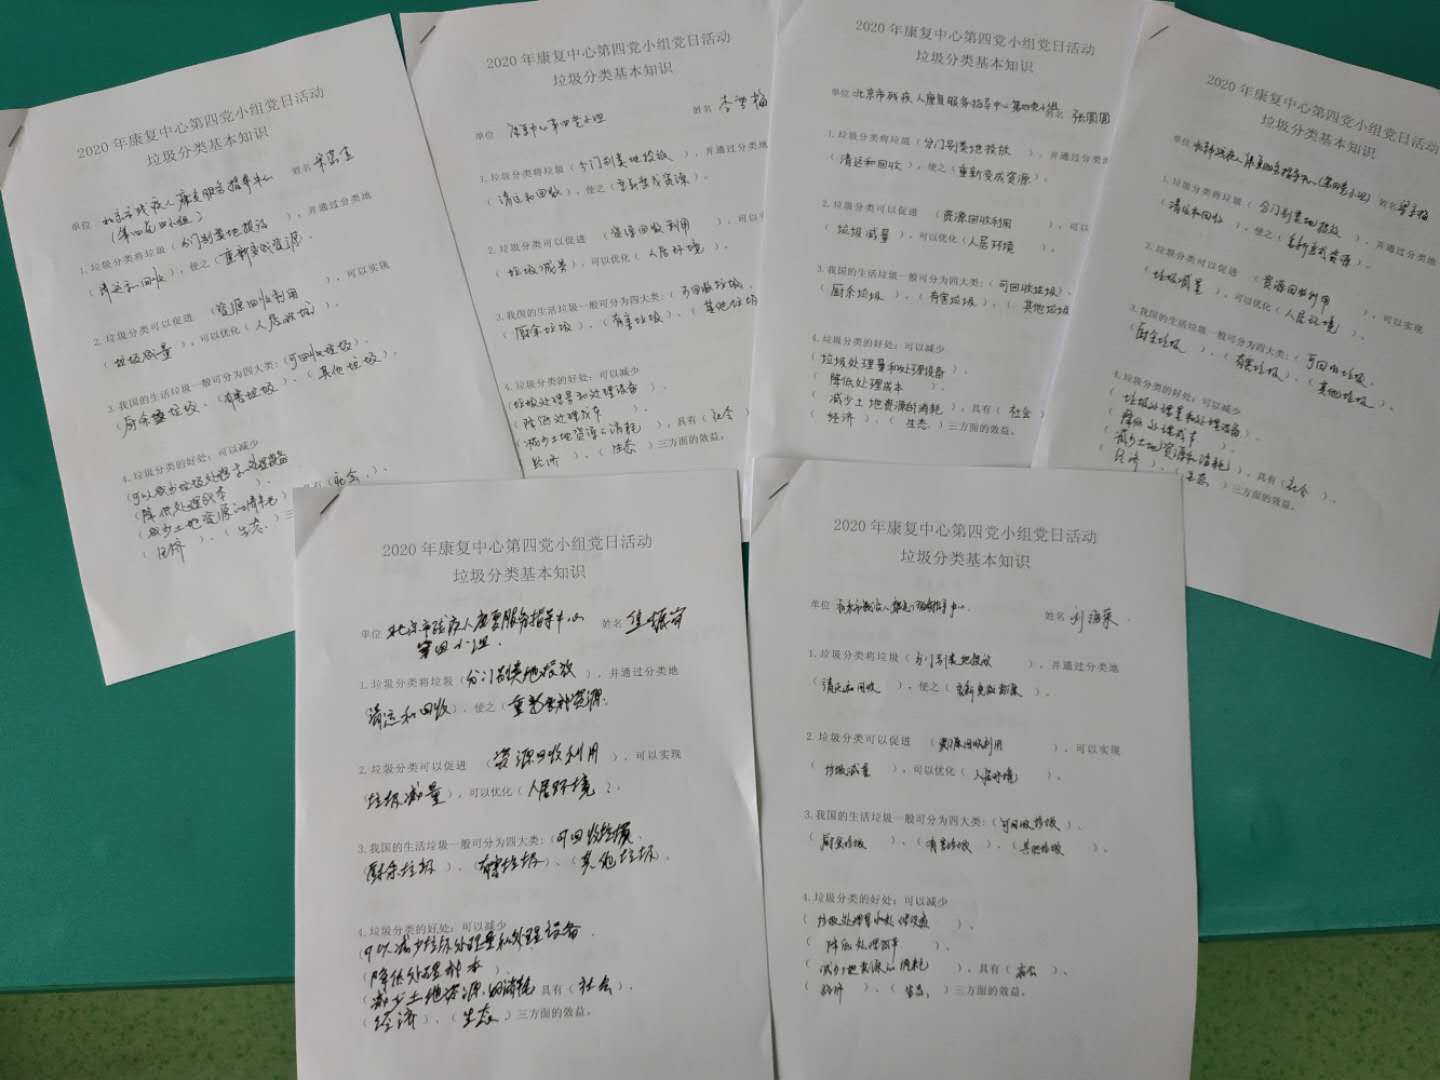 2020 年康复中心第四党小组党日活动
垃圾分类基本知识
单位 北京市残疾人康复服务指导中心 姓名
(第四党小组)
1.垃圾分类将垃圾(分门别类地投放),并通过分类地
(清运和回收),使之(重新变成资源)。
2.垃圾分类可以促进 (资源回收利用),可以实现
(垃圾减量),可以优化(人居环境)。
3.我国的生活垃圾一般可分为四大类:(可回收垃圾)、
(厨余垃圾、(有害垃圾)、(其他垃圾)。
4.垃圾分类的好处:可以减少
(可以减少垃圾处理量和处理设备
(降低处理成本 )、
(减少土地资源的消耗),具有(社会)、
(经济 )、(生态)三
2020 年康复中心第四党小组党日活动
垃圾分类基本知识
单位 康复中心第四党小组 姓名
1.垃圾分类将垃圾(分门别类地投放),并通过分类地
(清运和回收),使之(重新变成资源)。
2.垃圾分类可以促进 (资源回收利用 ),可以
(垃圾减量),可以优化(人居环境)。
3.我国的生活垃圾一般可分为四大类:(可回收垃圾、
(厨余垃圾)、(有害垃圾)、(其他垃圾
4.垃圾分类的好处:可以减少
(垃圾处理量和处理设备 )、
(降低处理成本 )、
(减少土地资源的消耗 ),具有(社会
经济 )、(生态)三方面的效益。
2020 年康复中心第四党小组党日活动
垃圾分类基本知识
单位 北京市残疾人康复服务指导中心第四党小组 姓名 张圆圆
1.垃圾分类将垃圾(分门别类地投放 ),并通过分类
(清运和回收 ),使之(重新变成资源)。
2.垃圾分类可以促进 (资源回收利用 ),可以
(垃圾减量 ),可以优化(人居环境 )。
3.我国的生活垃圾一般可分为四大类:(可回收垃圾)、
(厨余垃圾 )、(有害垃圾)、( 其他垃圾
4.垃圾分类的好处:可以减少
(垃圾处理量和处理设备 )、
( 降低处理成本 )、
( 减少土地资源的消耗 ),具有( 社会
( 经济 )、( 生态 )三方面的效益。
2020 年康复中心第四党小组党日活动
垃圾分类基本知识
单位 北京市残疾人康复服务指导中心(第四党小组) 姓名
1.垃圾分类将垃圾(分门别类地投放 ),并通过分类地
(清运和回收 ),使之(重新变成资源)。
2.垃圾分类可以促进 (资源回收利用 ),可以实现
(垃圾减量 ),可以优化(人居环境 )。
3.我国的生活垃圾一般可分为四大类:(可回收垃圾、
(厨余垃圾 )、(有害垃圾)、(其他垃圾)。
4.垃圾分类的好处:可以减少
( 垃圾处理量和处理设备)、
( 降低处理成本 )、
(减少土地资源和消耗),具有(社会 )、
( 经济 )、(生态 )三方面的效益。
2020 年康复中心第四党小组党日活动
垃圾分类基本知识
单位 北京市残疾人康复服务指导中心 姓名
第四小组.
1.垃圾分类将垃圾(分门别类地投放 ),并通过分类地
(清运和回收),使之(重新变成资源.
2.垃圾分类可以促进 (资源回收利用 ),可以实现
(垃圾减量),可以优化(人居环境 )。
3.我国的生活垃圾一般可分为四大类:(可回收垃圾、
(厨余垃圾 )、(有害垃圾)、(其他垃圾、
4.垃圾分类的好处:可以减少
(可以减少垃圾处理量和处理设备、
(降低处理成本 )、
(减少土地资源的消耗 具有(社会 )、
( 经济 )、( 生态 )三方面的效益。
2020 年康复中心第四党小组党日活动
垃圾分类基本知识
单位 北京市残疾人康复服务指导中心 姓名
1.垃圾分类将垃圾(分门别类地投放 ),并通过分类地
(清运和回收 ),使之(重新变成资源 )。
2.垃圾分类可以促进 (资源回收利用 ),可以实现
( 垃圾减量 ),可以优化(人居环境 )。
3.我国的生活垃圾一般可分为四大类:(可回收垃圾 )、
( 厨余垃圾 )、(有害垃圾 )、(其他垃圾 )。
4.垃圾分类的好处:可以减少
( 垃圾处理量和处理设备 )、
( 降低处理成本 )、
( 减少土地资源的消耗 ),具有( 社会 )、
( 经济 )、( 生态 )三方面的效益。